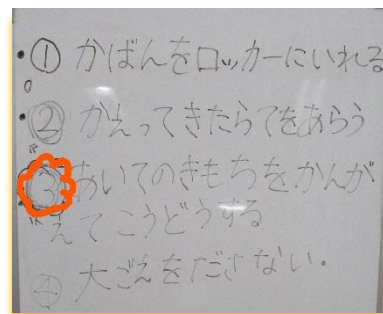 ① かばんをロッカーにいれる
② かえってきたらてをあらう
③ あいてのきもちをかんが
えてこうどうする
④ 大ごえをださない。